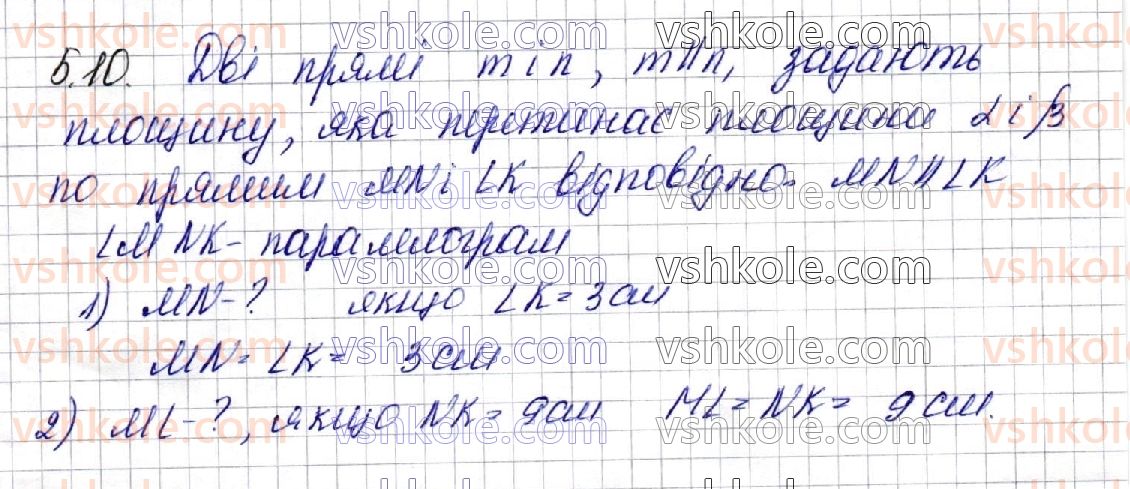 5.10. Дві прямі m і n, m∥n, задають
площину, яка перетинає площини α і β
по прямим MN і LK відповідно. MN∥LK
LMNK - паралелограм
1) MN-? якщо LK = 3 см
MN = LK = 3 см
2) ML-?, якщо NK = 9 см ML = NK = 9 см.